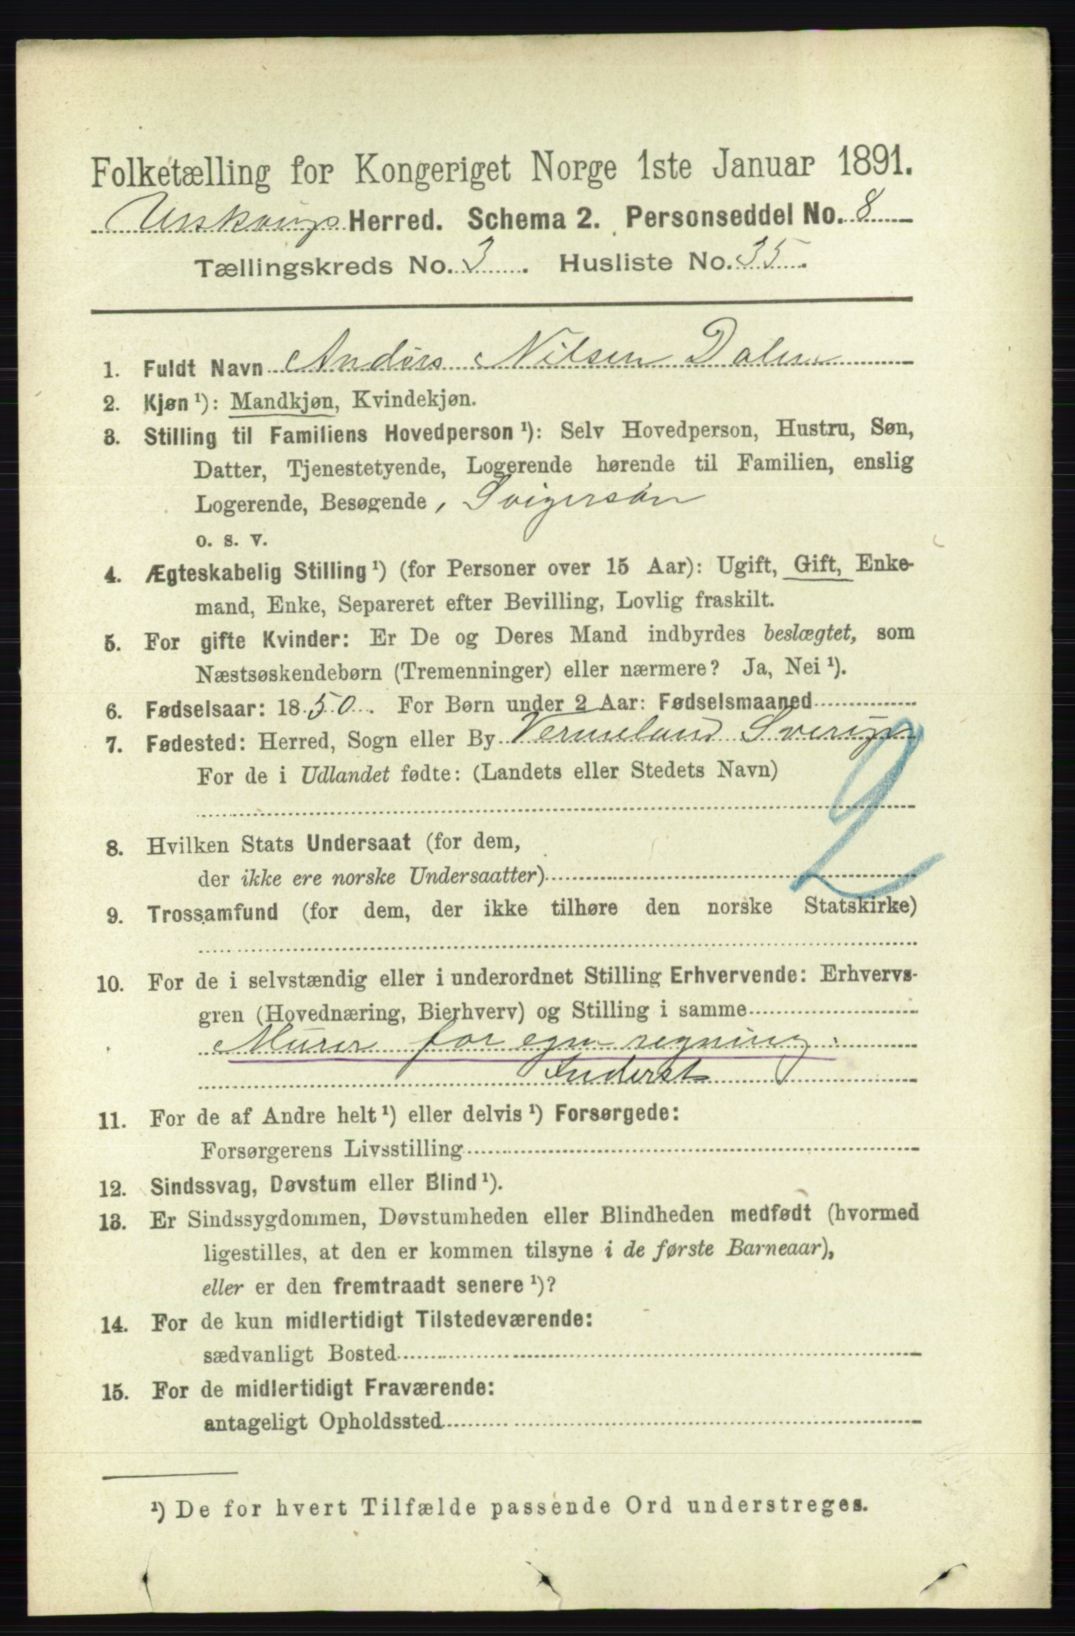 Folketælling for Kongeriget Norge 1ste Januar 1891.
Urskougs Herred. Schema 2. Personseddel No. 8
Tællingskreds No. 3. Husliste No. 35.
1. Fuldt Navn Anders Nilsen Dalen
2. Kjøn ¹): Mandkjøn, Kvindekjøn.
3. Stilling til Familiens Hovedperson ¹): Selv Hovedperson, Hustru, Søn,
Datter, Tjenestetyende, Logerende hørende til Familien, enslig
Logerende, Besøgende, Svigersøn
o. s. v.
4. Ægteskabelig Stilling ¹) (for Personer over 15 Aar): Ugift, Gift, Enke-
mand, Enke, Separeret efter Bevilling, Lovlig fraskilt.
5. For gifte Kvinder: Er De og Deres Mand indbyrdes beslægtet, som
Næstsøskendebørn (Tremenninger) eller nærmere? Ja, Nei ¹).
6. Fødselsaar: 1850. For Børn under 2 Aar: Fødselsmaaned
7. Fødested: Herred, Sogn eller By Vermeland Sverige
For de i Udlandet fødte: (Landets eller Stedets Navn)
2
8. Hvilken Stats Undersaat (for dem,
der ikke ere norske Undersaatter)
9. Trossamfund (for dem, der ikke tilhøre den norske Statskirke)
10. For de i selvstændig eller i underordnet Stilling Erhvervende: Erhvervs-
gren (Hovednæring, Bierhverv) og Stilling i samme
Murer for egen regning.
Inderst
11. For de af Andre helt ¹) eller delvis ¹) Forsørgede:
Forsørgerens Livsstilling
12. Sindssvag, Døvstum eller Blind ¹).
13. Er Sindssygdommen, Døvstumheden eller Blindheden medfødt (hvormed
ligestilles, at den er kommen tilsyne i de første Barneaar),
eller er den fremtraadt senere ¹)?
14. For de kun midlertidigt Tilstedeværende:
sædvanligt Bosted
15. For de midlertidigt Fraværende:
antageligt Opholdssted
¹) De for hvert Tilfælde passende Ord understreges.